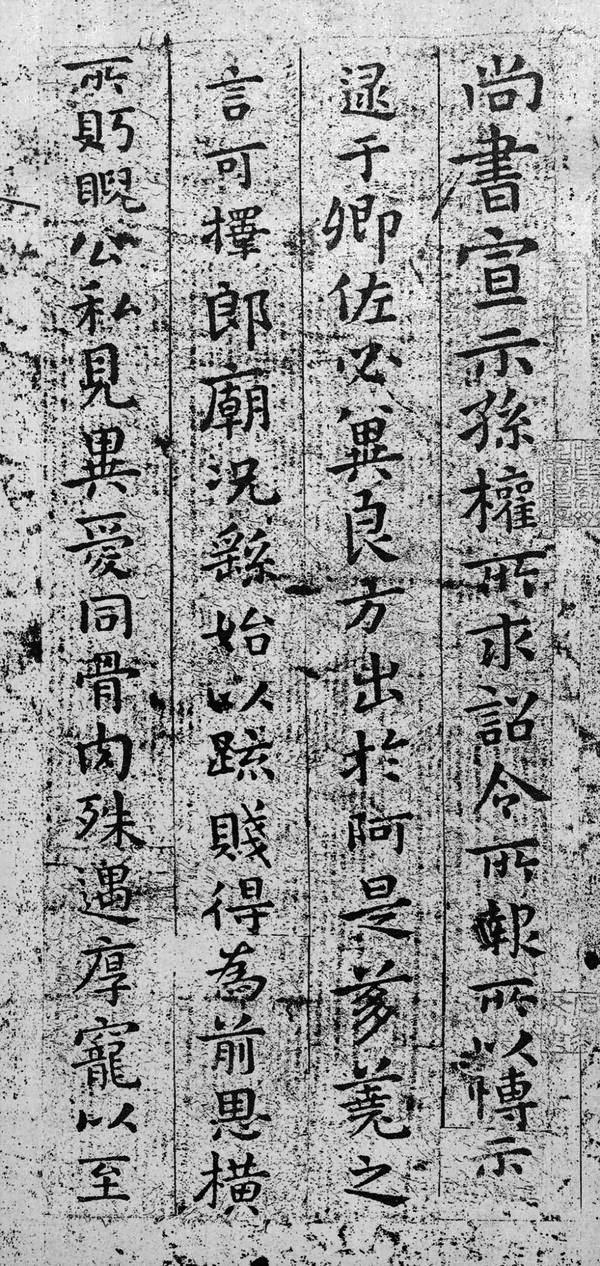 尚書宣示孫權所求詔令所報所以博示
逮于卿佐必異良方出於阿是蒭蕘之
言可擇郎廟況繇始以疏賤得為前恩橫
所眄睨公私見異愛同骨肉殊遇厚寵以至